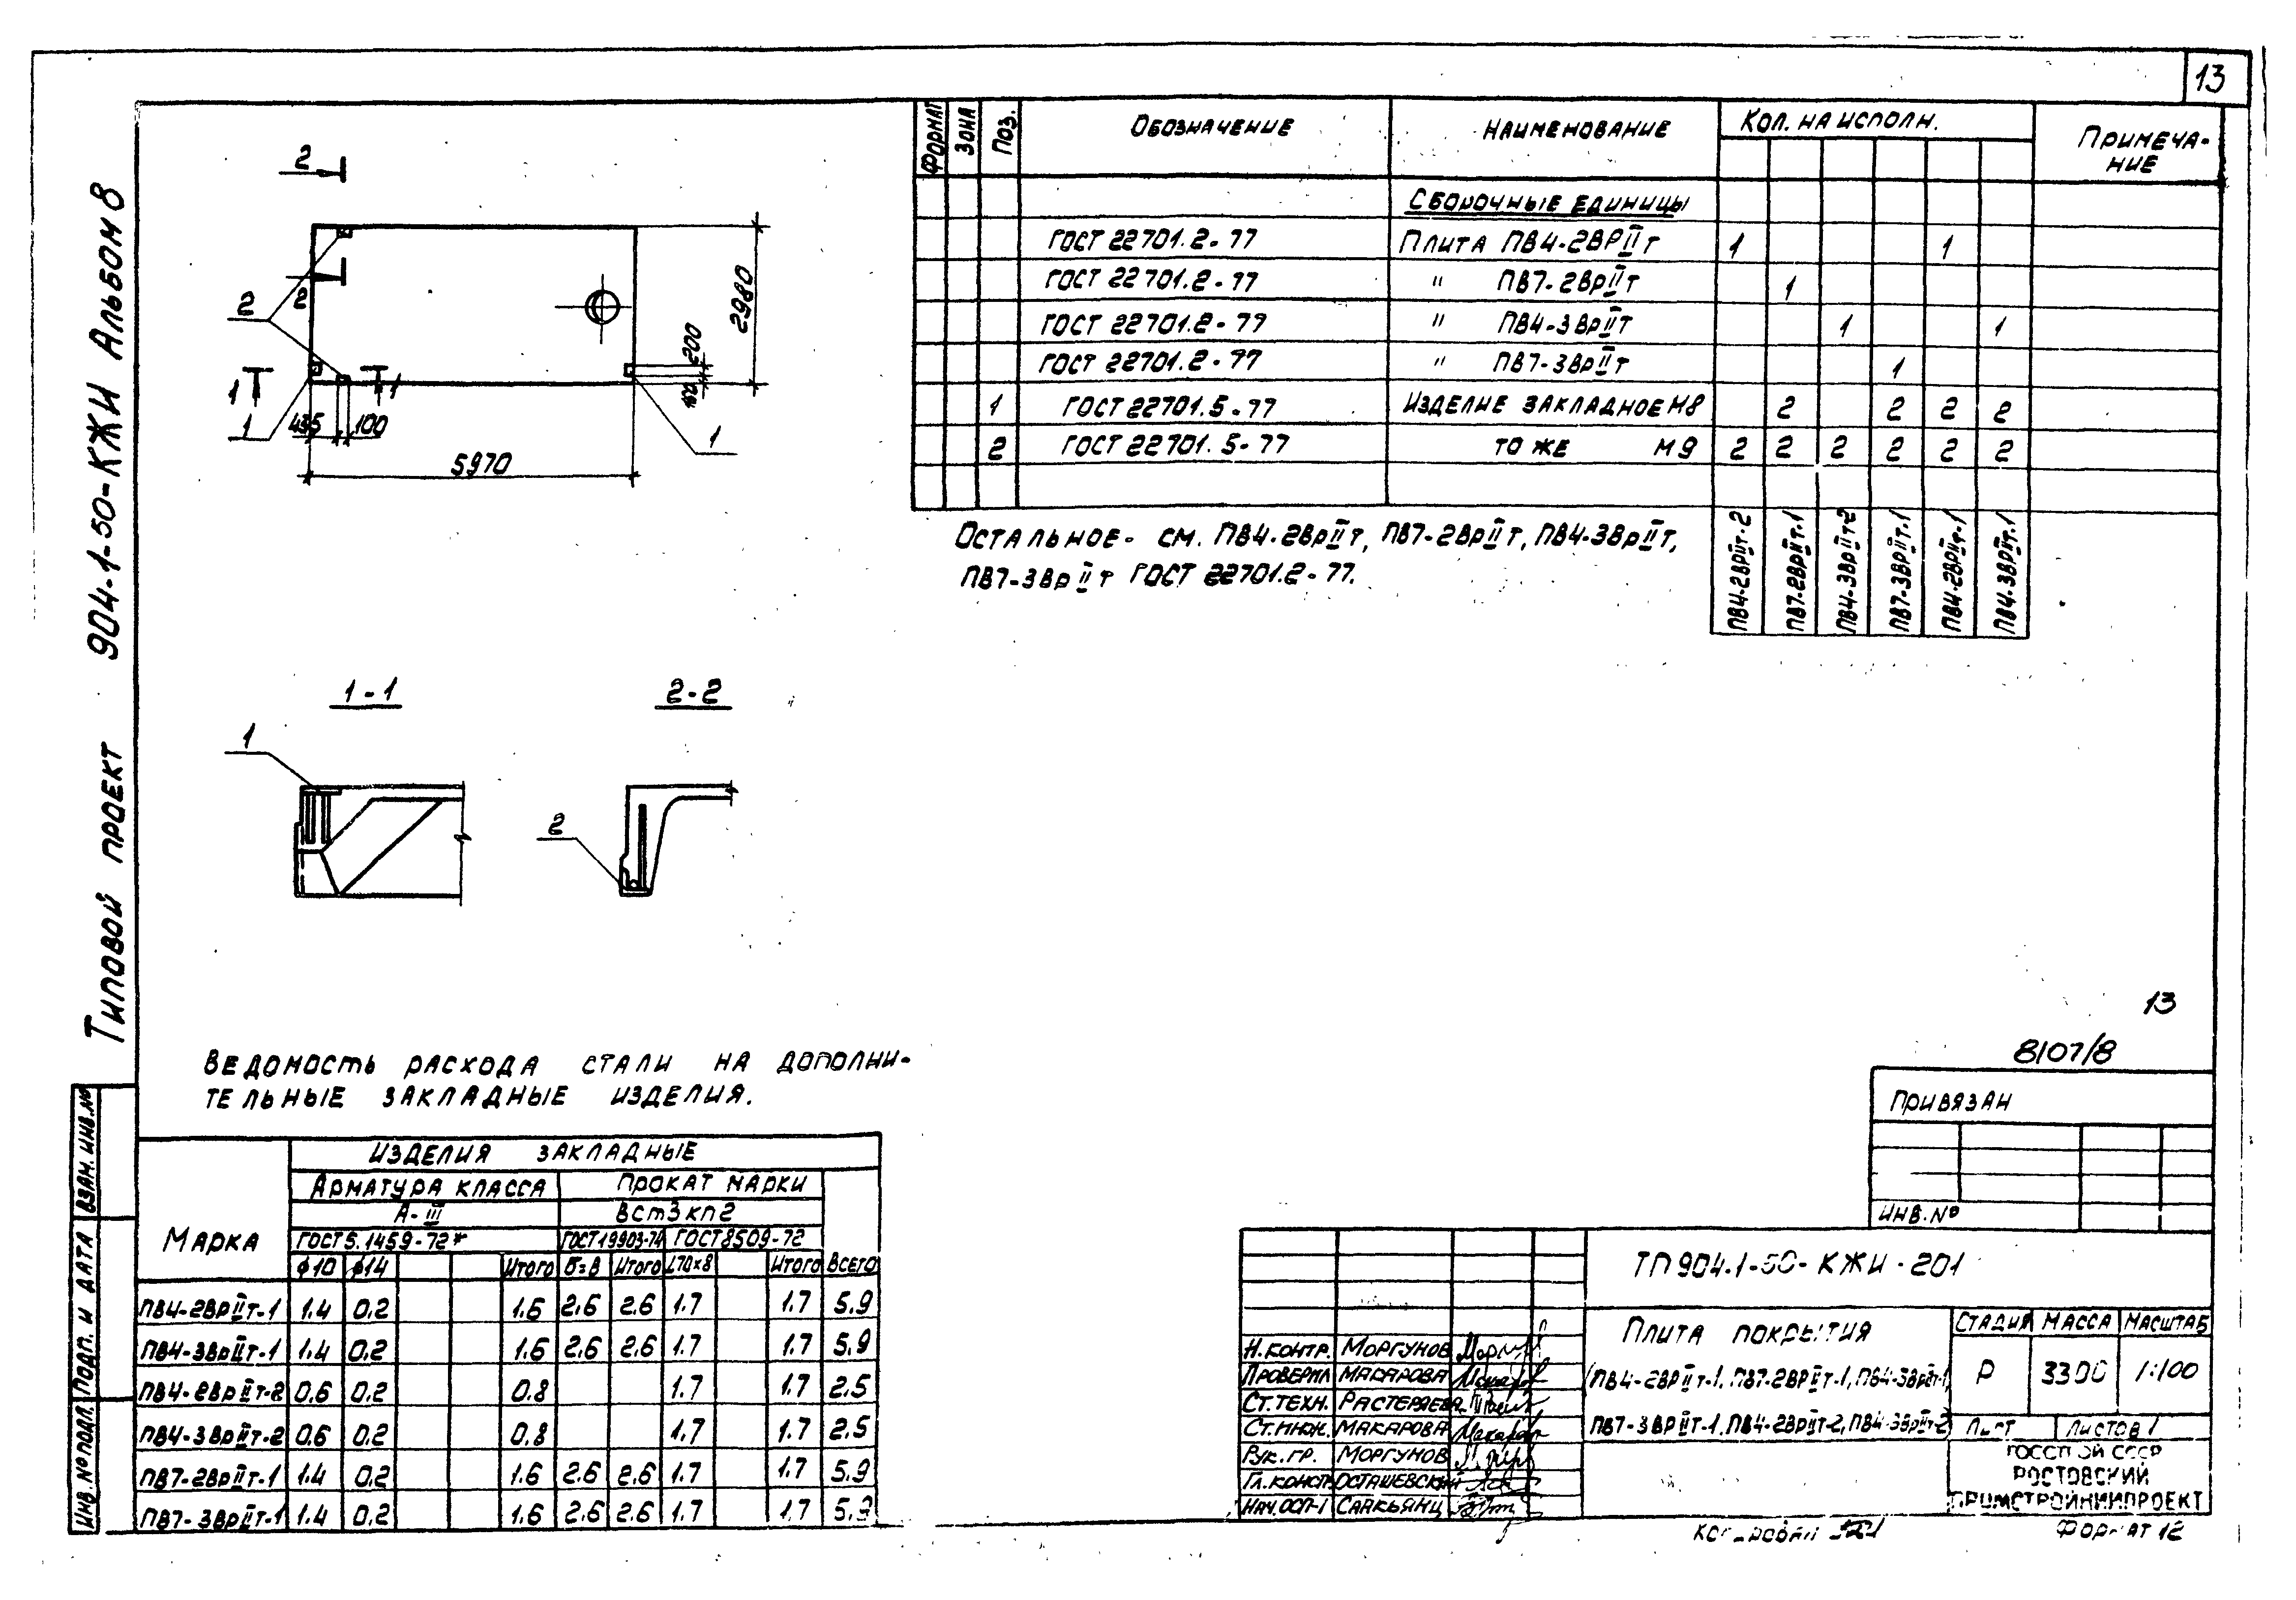 13
Типовой проект 904-1-50-КЖИ Альбом 8
2
2
2
1
1
1
1
435
100
5970
2980
200
1-1
2-2
1
2
Формат
Зона
Поз.
Обозначение
Наименование
Кол. на исполн.
Примеча-
ние
Сборочные единицы
ГОСТ 22701.2-77 Плита ПВ4-2ВрIIт 1 1
ГОСТ 22701.2-77 " ПВ7-2ВрIIт 1
ГОСТ 22701.2-77 " ПВ4-3ВрIIт 1 1
ГОСТ 22701.2-77 " ПВ7-3ВрIIт 1
1 ГОСТ 22701.5-77 Изделие закладное М8 2 2 2 2
2 ГОСТ 22701.5-77 то же М9 2 2 2 2 2 2
ПВ4-2ВрIIт-2
ПВ7-2ВрIIт-1
ПВ4-3ВрIIт-2
ПВ7-3ВрIIт-1
ПВ4-2ВрIIт-1
ПВ4-3ВрIIт-1
Остальное - см. ПВ4-2ВрIIт, ПВ7-2ВрIIт, ПВ4-3ВрIIт,
ПВ7-3ВрIIт ГОСТ 22701.2-77.
Ведомость расхода стали на дополни-
тельные закладные изделия.
Марка
Изделия закладные
Арматура класса Прокат марки
А-III ВСт3кп2
ГОСТ 5.1459-72* ГОСТ 19903-74 ГОСТ 8509-72
ϕ10 ϕ14 Итого δ=8 Итого L70×8 Итого Всего
ПВ4-2ВрIIт-1 1.4 0.2 1.6 2.6 2.6 1.7 1.7 5.9
ПВ4-3ВрIIт-1 1.4 0.2 1.6 2.6 2.6 1.7 1.7 5.9
ПВ4-2ВрIIт-2 0.6 0.2 0.8 1.7 1.7 2.5
ПВ4-3ВрIIт-2 0.6 0.2 0.8 1.7 1.7 2.5
ПВ7-2ВрIIт-1 1.4 0.2 1.6 2.6 2.6 1.7 1.7 5.9
ПВ7-3ВрIIт-1 1.4 0.2 1.6 2.6 2.6 1.7 1.7 5.9
Взам. инв. №
Подп. и дата
Инв. № подл.
13
8107/8
Привязан
Инв. №
ТП 904-1-50-КЖИ-201
Плита покрытия
(ПВ4-2ВрIIт-1, ПВ7-2ВрIIт-1, ПВ4-3ВрIIт-1,
ПВ7-3ВрIIт-1, ПВ4-2ВрIIт-2, ПВ4-3ВрIIт-2)
Стадия Масса Масштаб
Р 3300 1:100
Лист Листов 1
Госстрой СССР
Ростовский
Промстройниипроект
Н.контр. Моргунов
Проверил Макарова
Ст.техн. Растеряева
Ст.инж. Макарова
Рук.гр. Моргунов
Гл.консп. Осташевский
Нач.ОСП-1 Саакьянц
Копировал
Формат 12